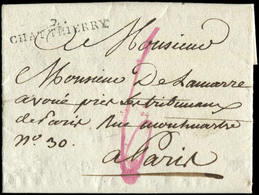 2
CHAU-THIERRY
A Monsieur
Monsieur De Lamarre
avoué près les tribunaux
de Paris Rue montmartre
n.o 30.
a Paris